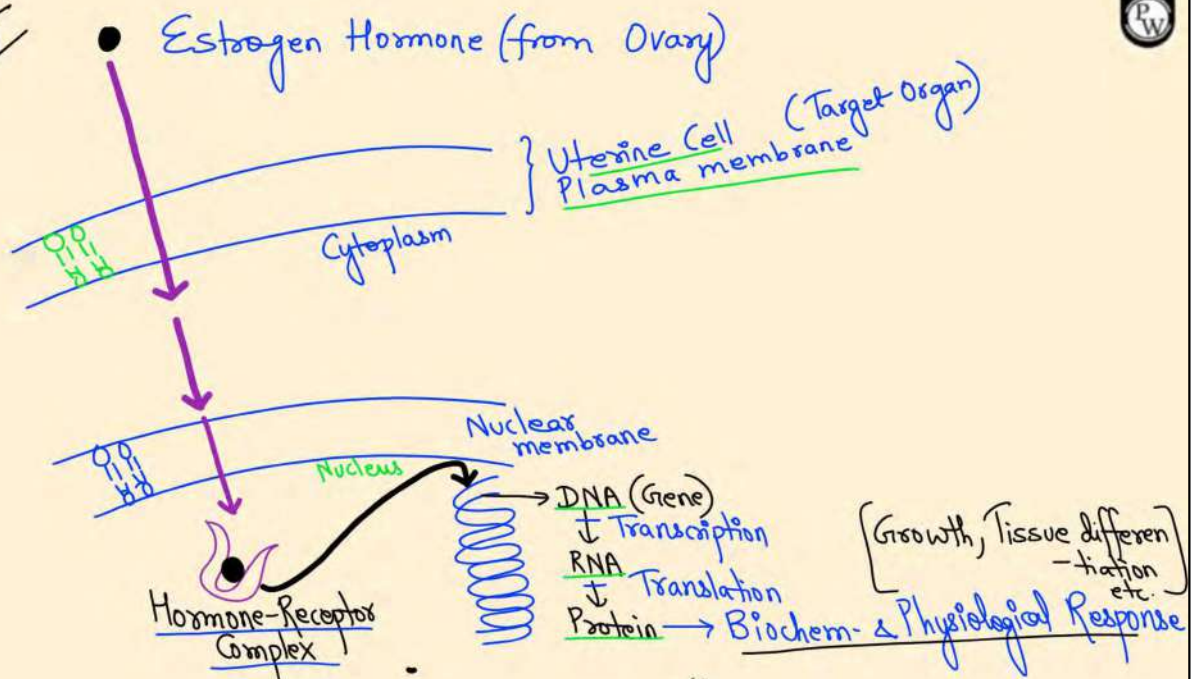 PW
Estrogen Hormone (from Ovary)
Uterine Cell (Target Organ)
Plasma membrane
Cytoplasm
Nuclear
membrane
Nucleus
DNA (Gene)
Transcription
RNA
Translation
Protein → Biochem- & Physiological Response
[Growth, Tissue differen
-tiation
etc.]
Hormone-Receptor
Complex